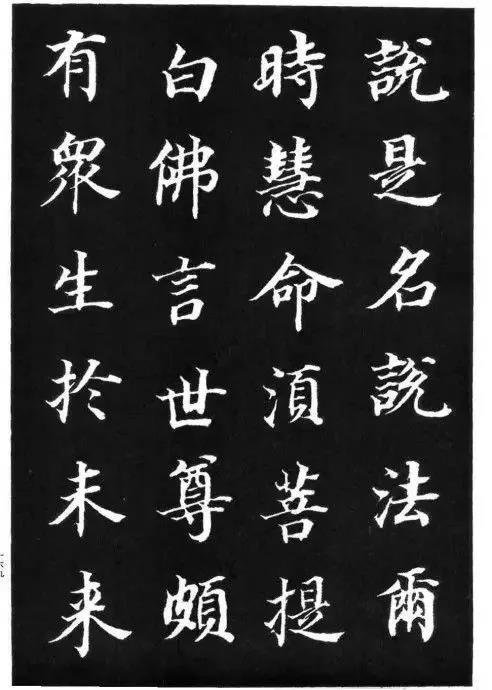 說是名說法爾
時慧命須菩提
白佛言世尊頗
有衆生於未来
一六九